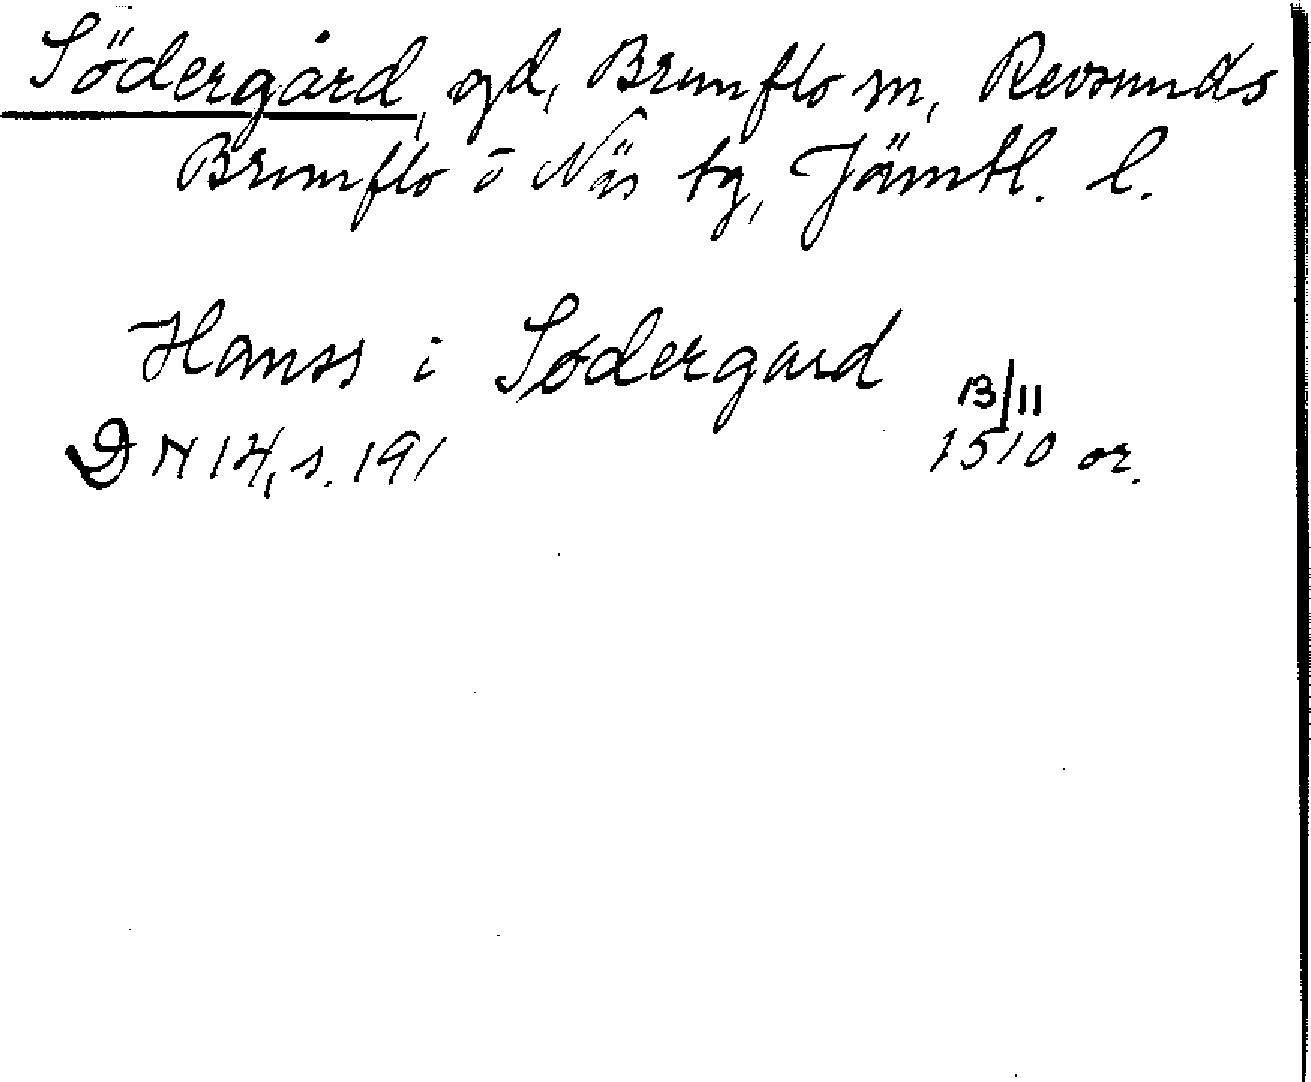 Södergård, gd, Brunflo sn, Revsunds
Brunflo o Näs tg, Jämtl. l.
Hanss i Sødergard
13/11
DN 14, s. 191 1510 or.